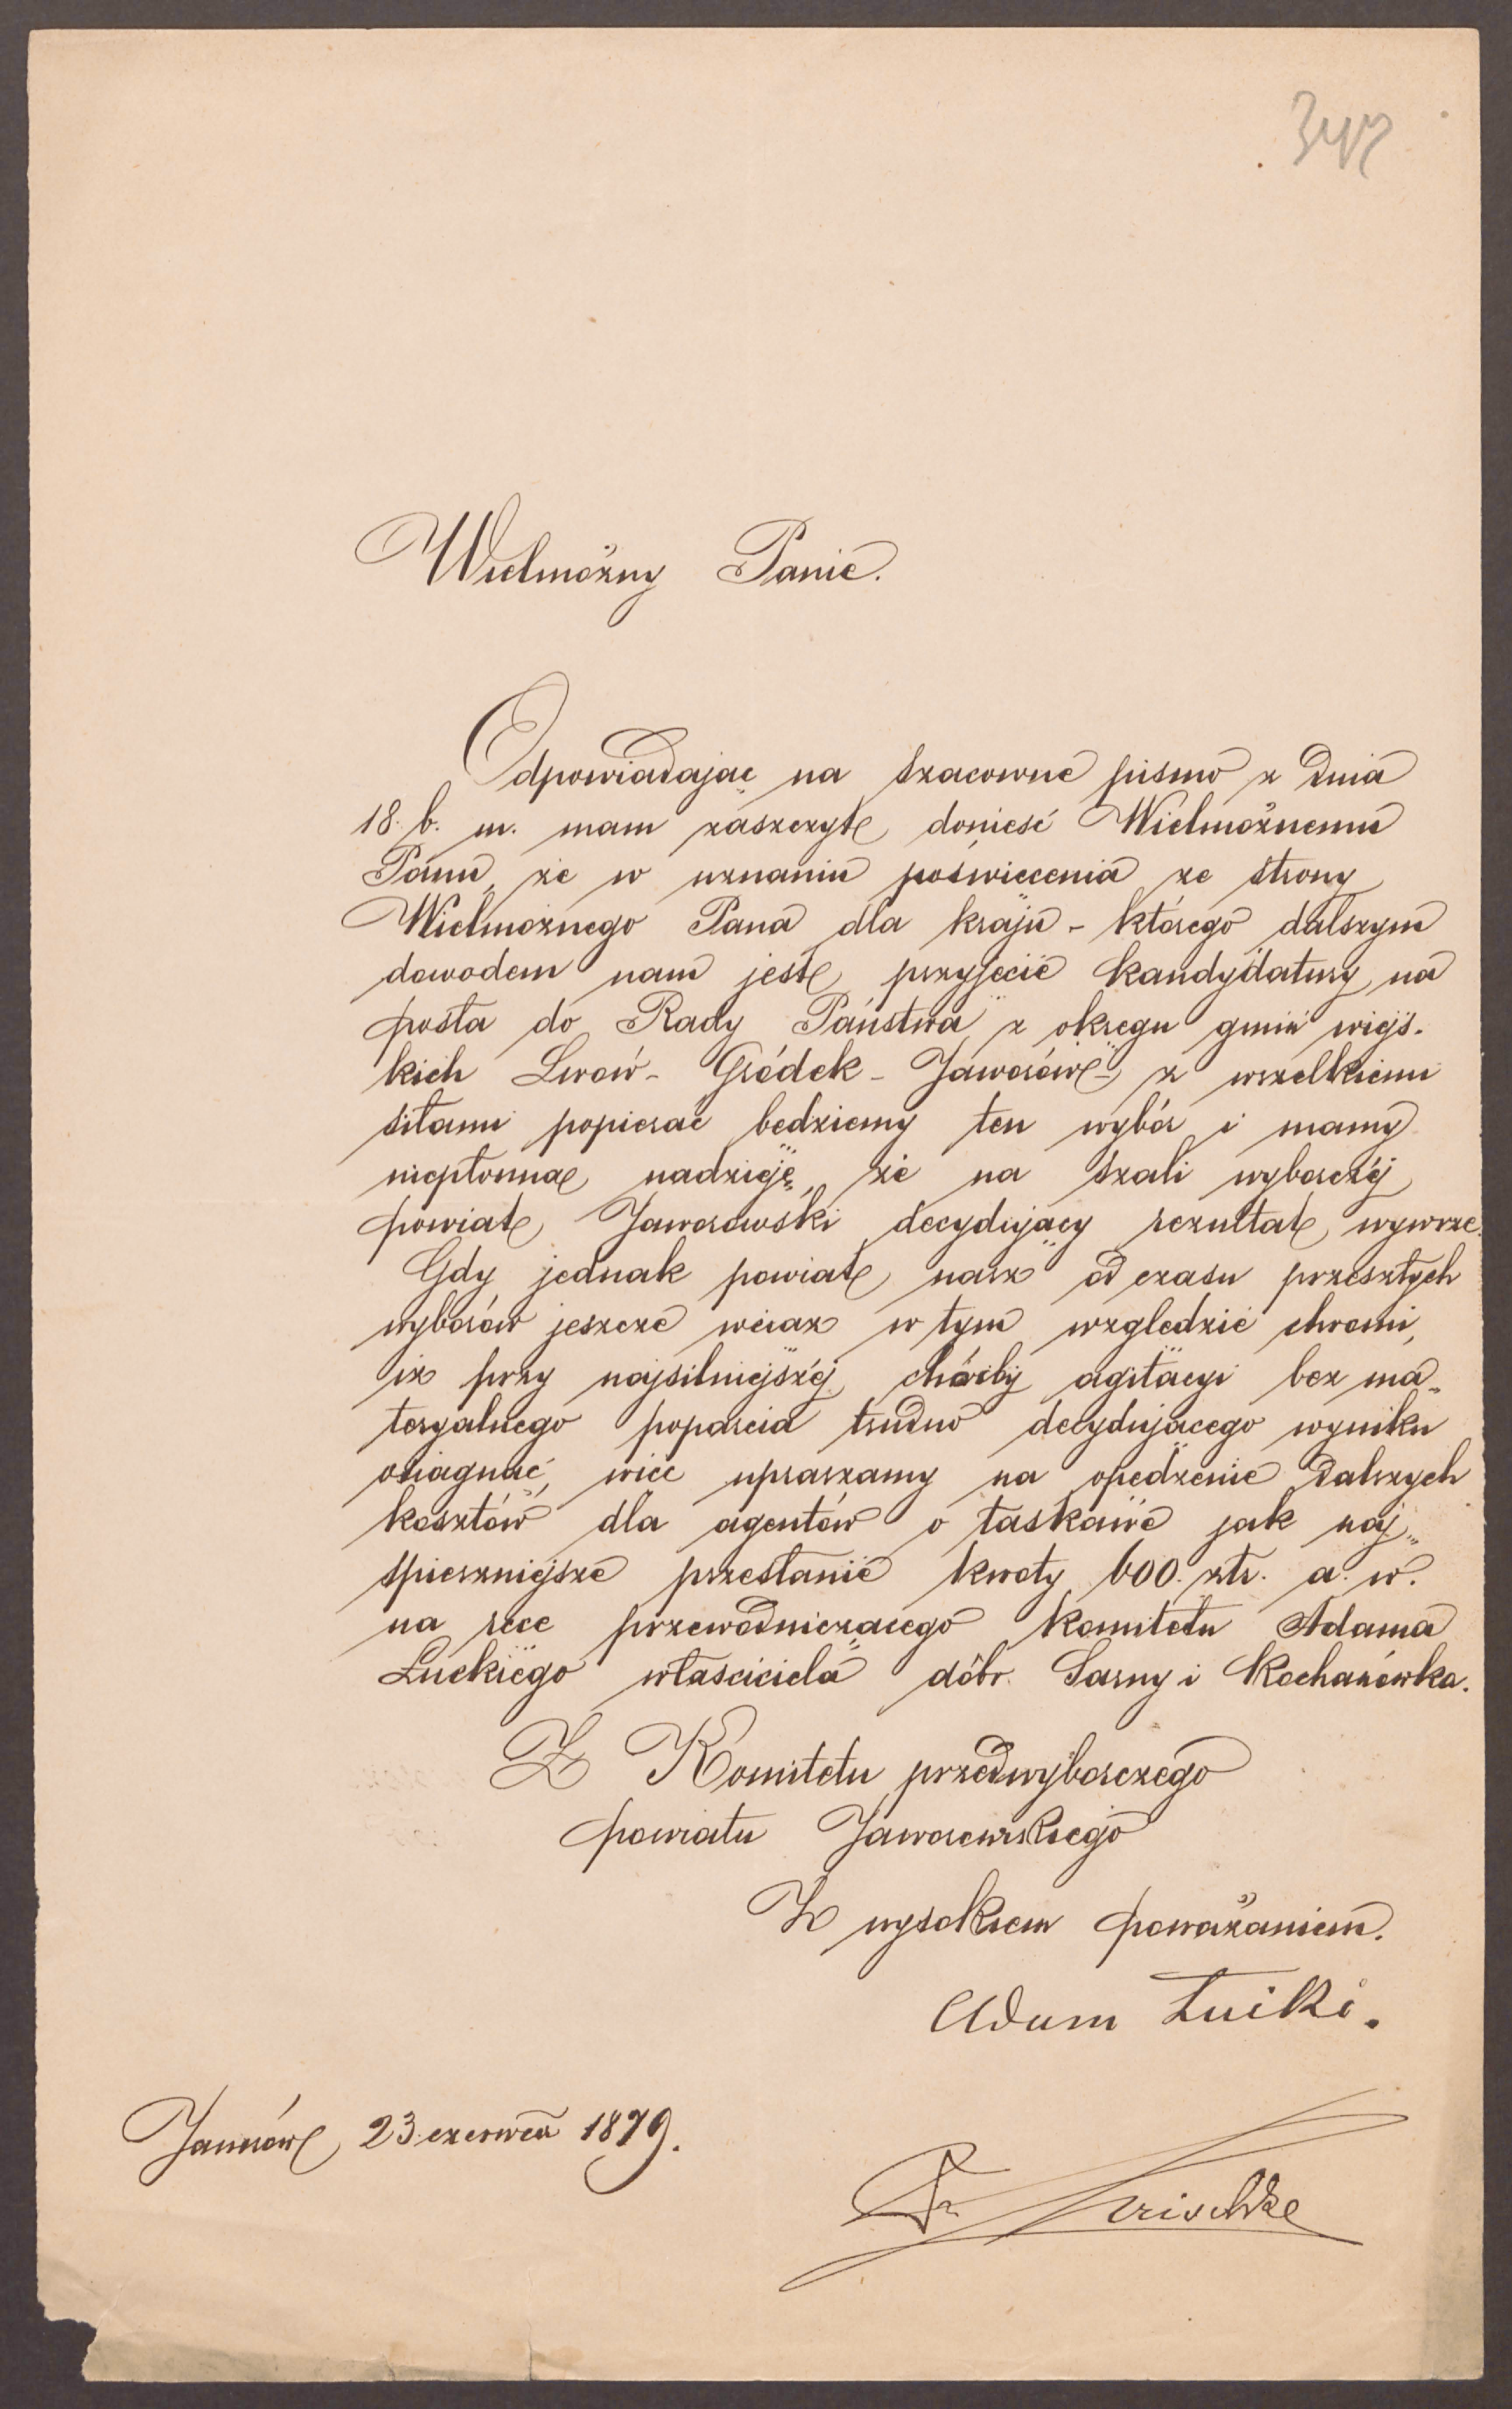 347
Wielmożny Panie.
Odpowiadając na szacowne pismo z dnia
18. b. m. mam zaszczyt donieść Wielmożnemu
Panu, że w uznaniu poświęcenia ze strony
Wielmożnego Pana dla kraju - którego dalszym
dowodem nam jest przyjęcie kandydatury na
posła do Rady Państwa z okręgu gmin wiejs-
kich Lwów - Gródek - Jaworów - z wszelkiemi
siłami popierać będziemy ten wybór i mamy
niepłonną nadzieję, że na szali wyborczéj
powiat Jaworowski decydujący rezultat wywrze.
Gdy jednak powiat nasz od czasu przeszłych
wyborów jeszcze wciąż w tym względzie chromi,
iż przy najsilniejszéj choćby agitacyi bez ma-
teryalnego poparcia trudno decydującego wyniku
osiągnąć, więc upraszamy na opędzenie dalszych
kosztów dla agentów o łaskawe jak naj-
spieszniejsze przesłanie kwoty 600. złr. a. w.
na ręce przewodniczącego komitetu Adama
Łuckiego właściciela dóbr Sarny i Kochanówka.
Z Komitetu przedwyborczego
powiatu Jaworowskiego
Z wysokiem poważaniem.
Adam Łucki.
Jaworów, 23. czerwca 1879.